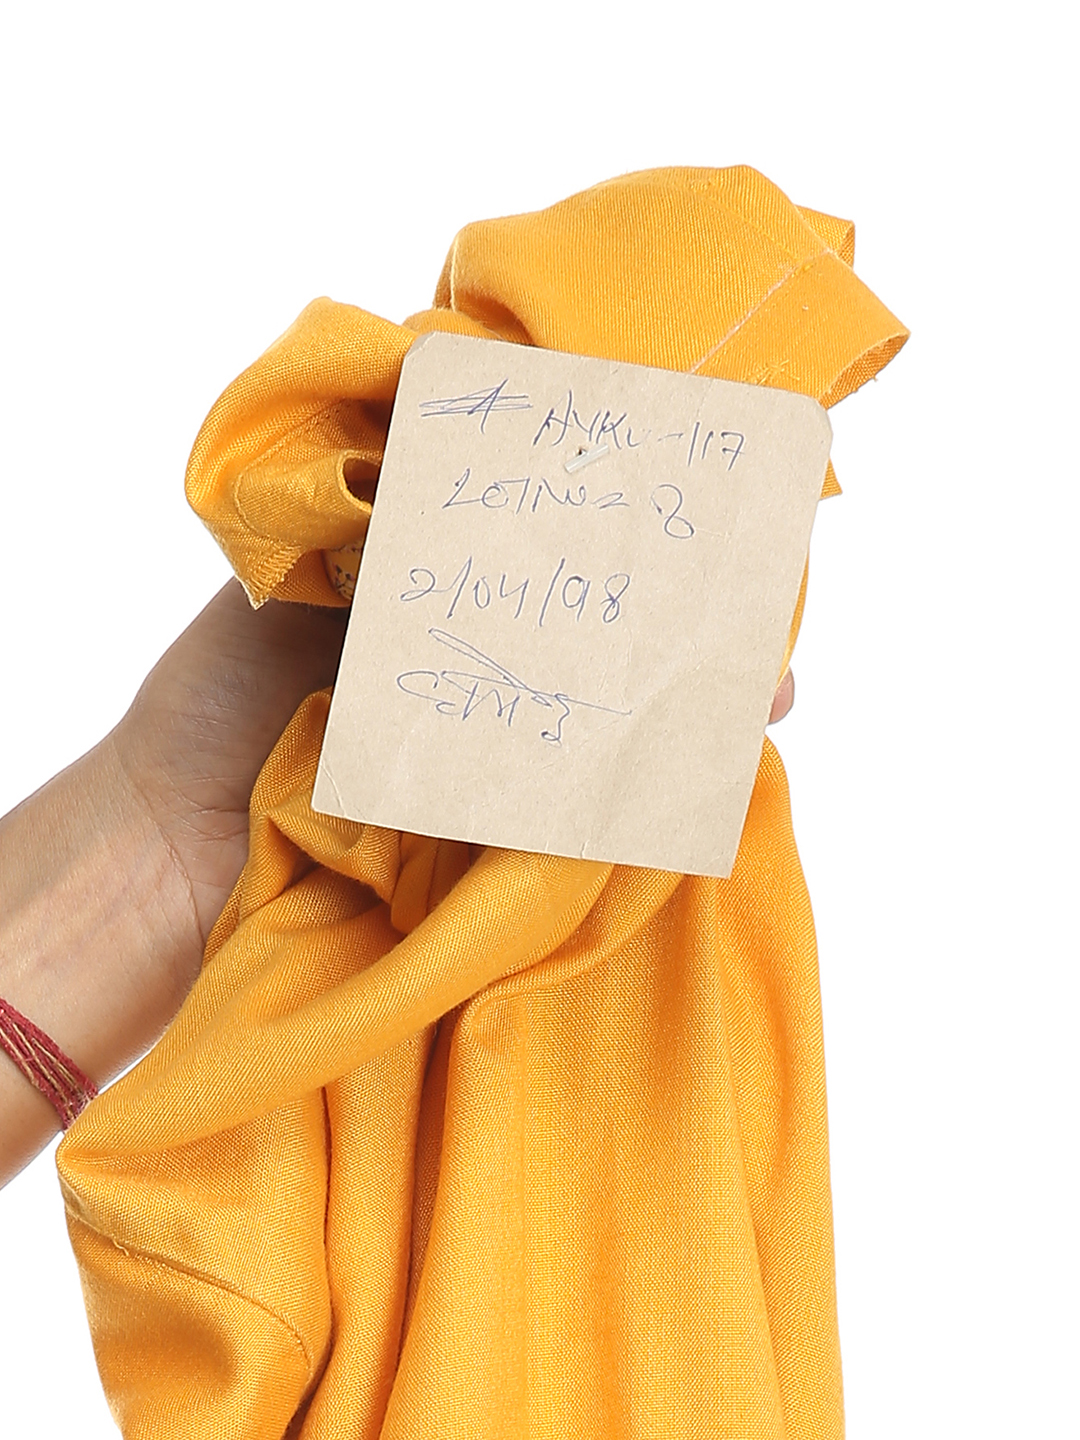 AYKU-117
LOT NO 8
2/04/98